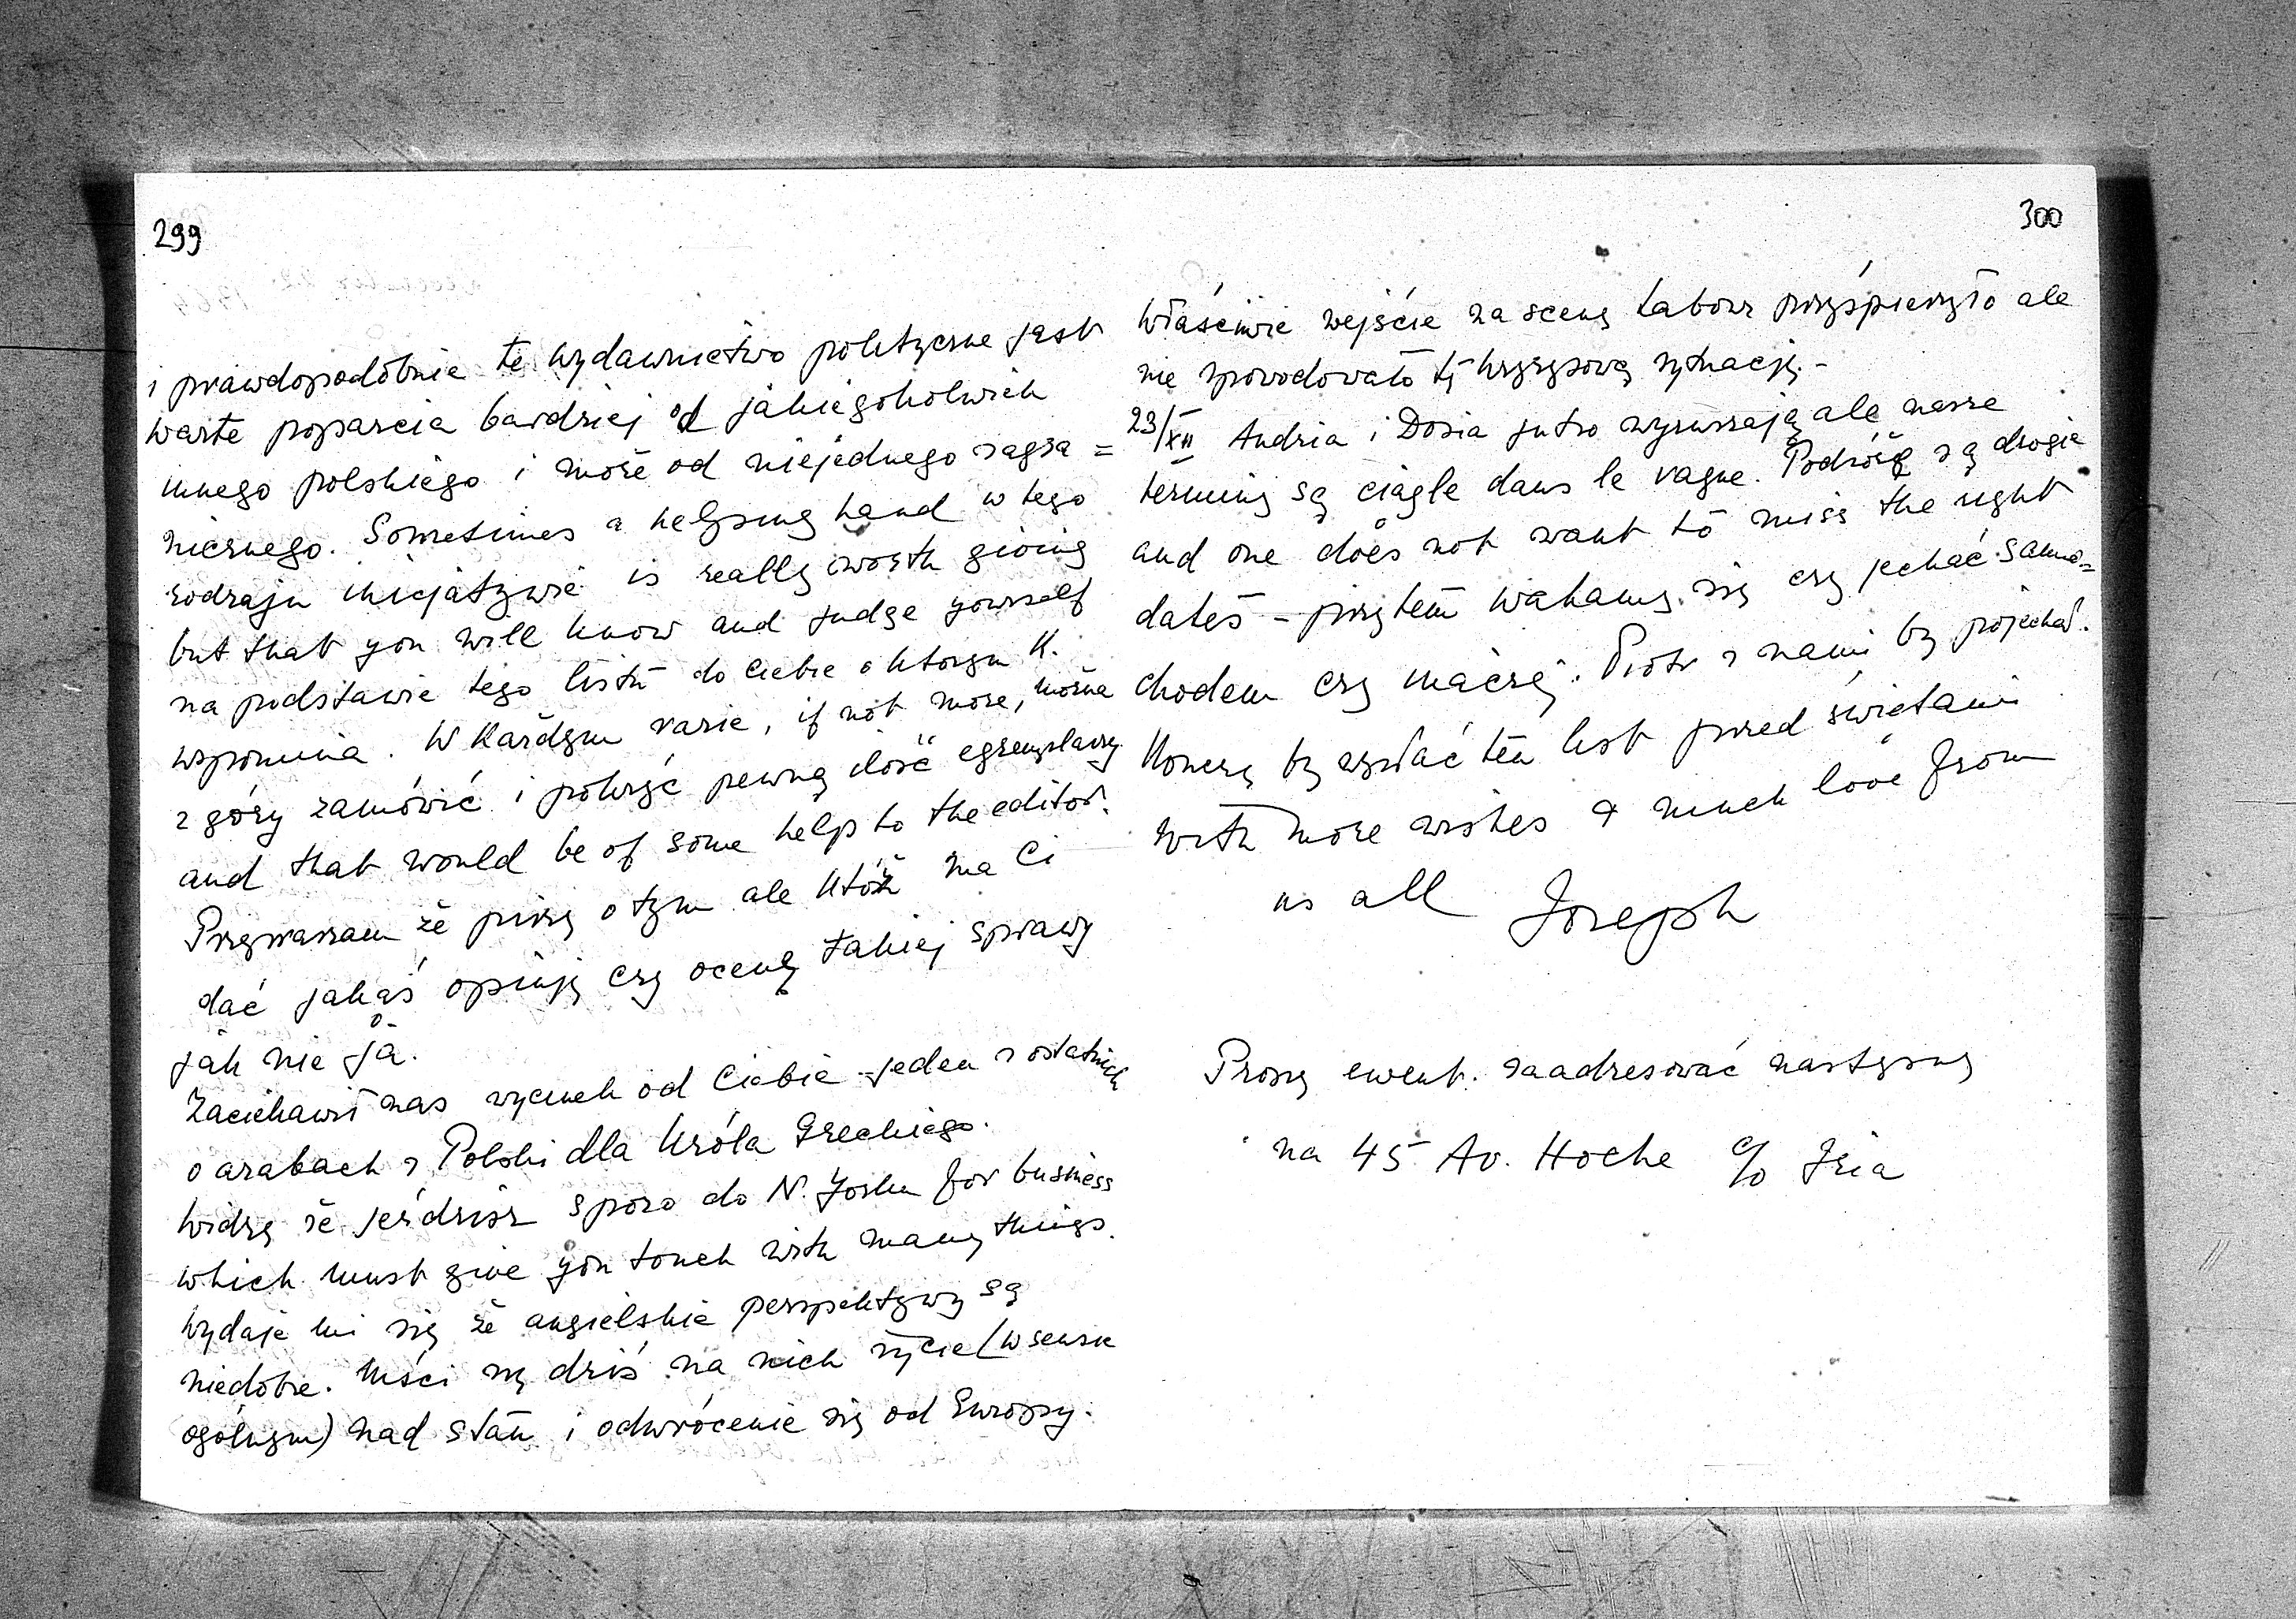 299
i prawdopodobnie te wydawnictwo polityczne jest
warte poparcia bardziej od jakiegokolwiek
innego polskiego i może od niejednego zagra=
nicznego. Sometimes a helping hand w tego
rodzaju inicjatywie is really worth giving
but that you will know and judge yourself
na podstawie tego listu do Ciebie o którym K.
wspomina. W każdym razie, if not more, można
z góry zamówić i pokryć pewną ilość egzemplarzy
and that would be of some help to the editor.
Przepraszam że piszę o tym ale któż ma Ci
dać jakąś opinję czy ocenę takiej sprawy
jak nie ja.
Zaciekawił nas wycinek od Ciebie jeden z ostatnich
o arabach z Polski dla Króla Greckiego.
Widzę że jeździsz sporo do N. Yorku for business
which must give you touch with many things.
Wydaje mi się że angielskie perspektywy są
niedobre. Mści się dziś na nich życie (w sensie
ogólnym) nad stan i odwrócenie się od Europy.
300
Właściwie wejście na scenę Labour przyśpieszyło ale
nie spowodowało tę kryzysową sytuację.-
23/XII Andzia i Dosia jutro wyruszają ale nasze
terminy są ciągle dans le vague. Podróże są drogie
and one does not want to miss the right
dates - przytem wahamy się czy jechać samo=
chodem czy inaczej. Piotr z nami by pojechał.
Kończę by wysłać ten list przed świętami
with more wishes & much love from
us all Joseph
Proszę ewent. zaadresować następny
na 45 Av. Hoche c/o Isia